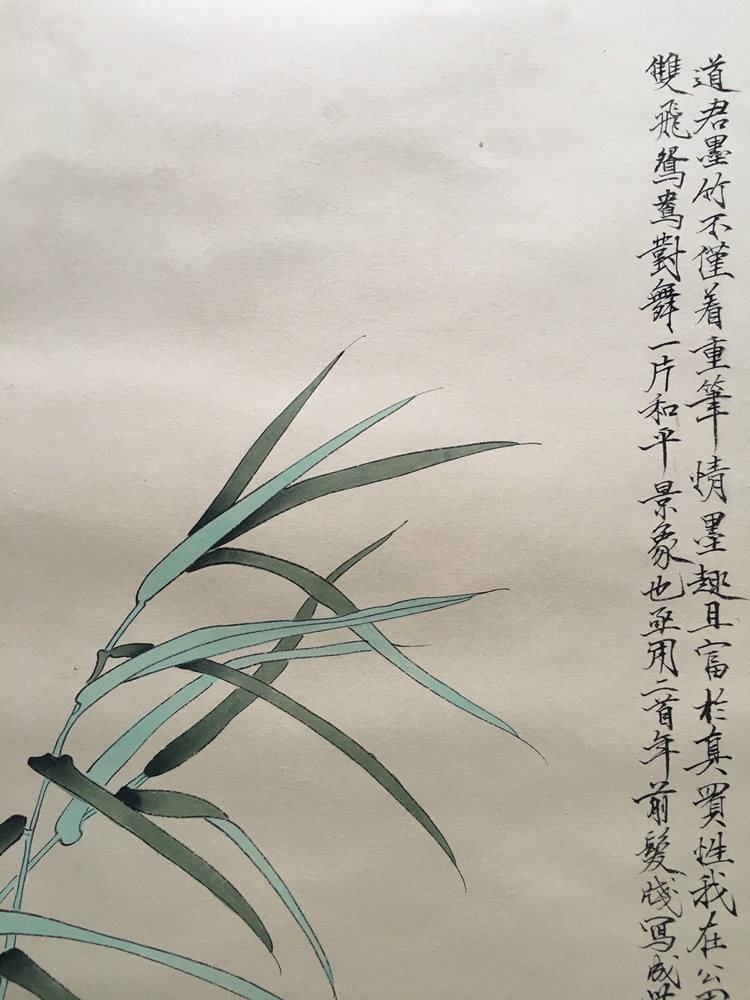 道君墨竹不僅着重筆情墨趣且富於真實性我在公園
雙飛鴛鴦對舞一片和平景象也亟用二百年前髮牋寫成